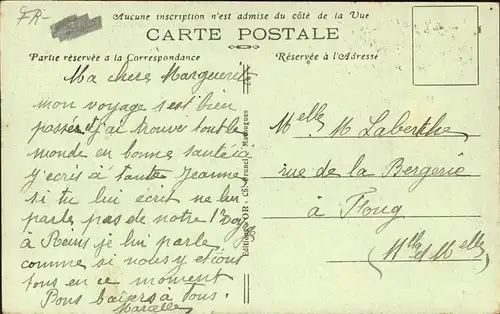 FR-
Aucune inscription n'est admise du côté de la Vue
CARTE POSTALE
Partie réservée a la Correspondance
Réservée à l'Adresse
Ma chere Marguerite
mon voyage s'est bien
passé et j'ai trouver tout le
monde en bonne santé ici
j'écris à tante Jeanne
si tu lui écrit ne lui
parle pas de notre voyage
à Reims je lui parle
comme si nous y etions
tous en ce moment
Bons baisers à Tous.
Marcelle
Editions D'OR: Ch. Brunel
Melle M Laberthe
rue de la Bergerie
à Foug
(Mlle et Melle)